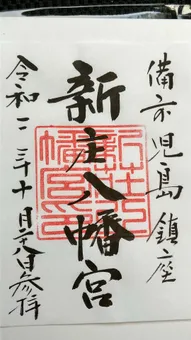 備前児島鎮座
新庄八幡宮
令和二年十月 日参拝